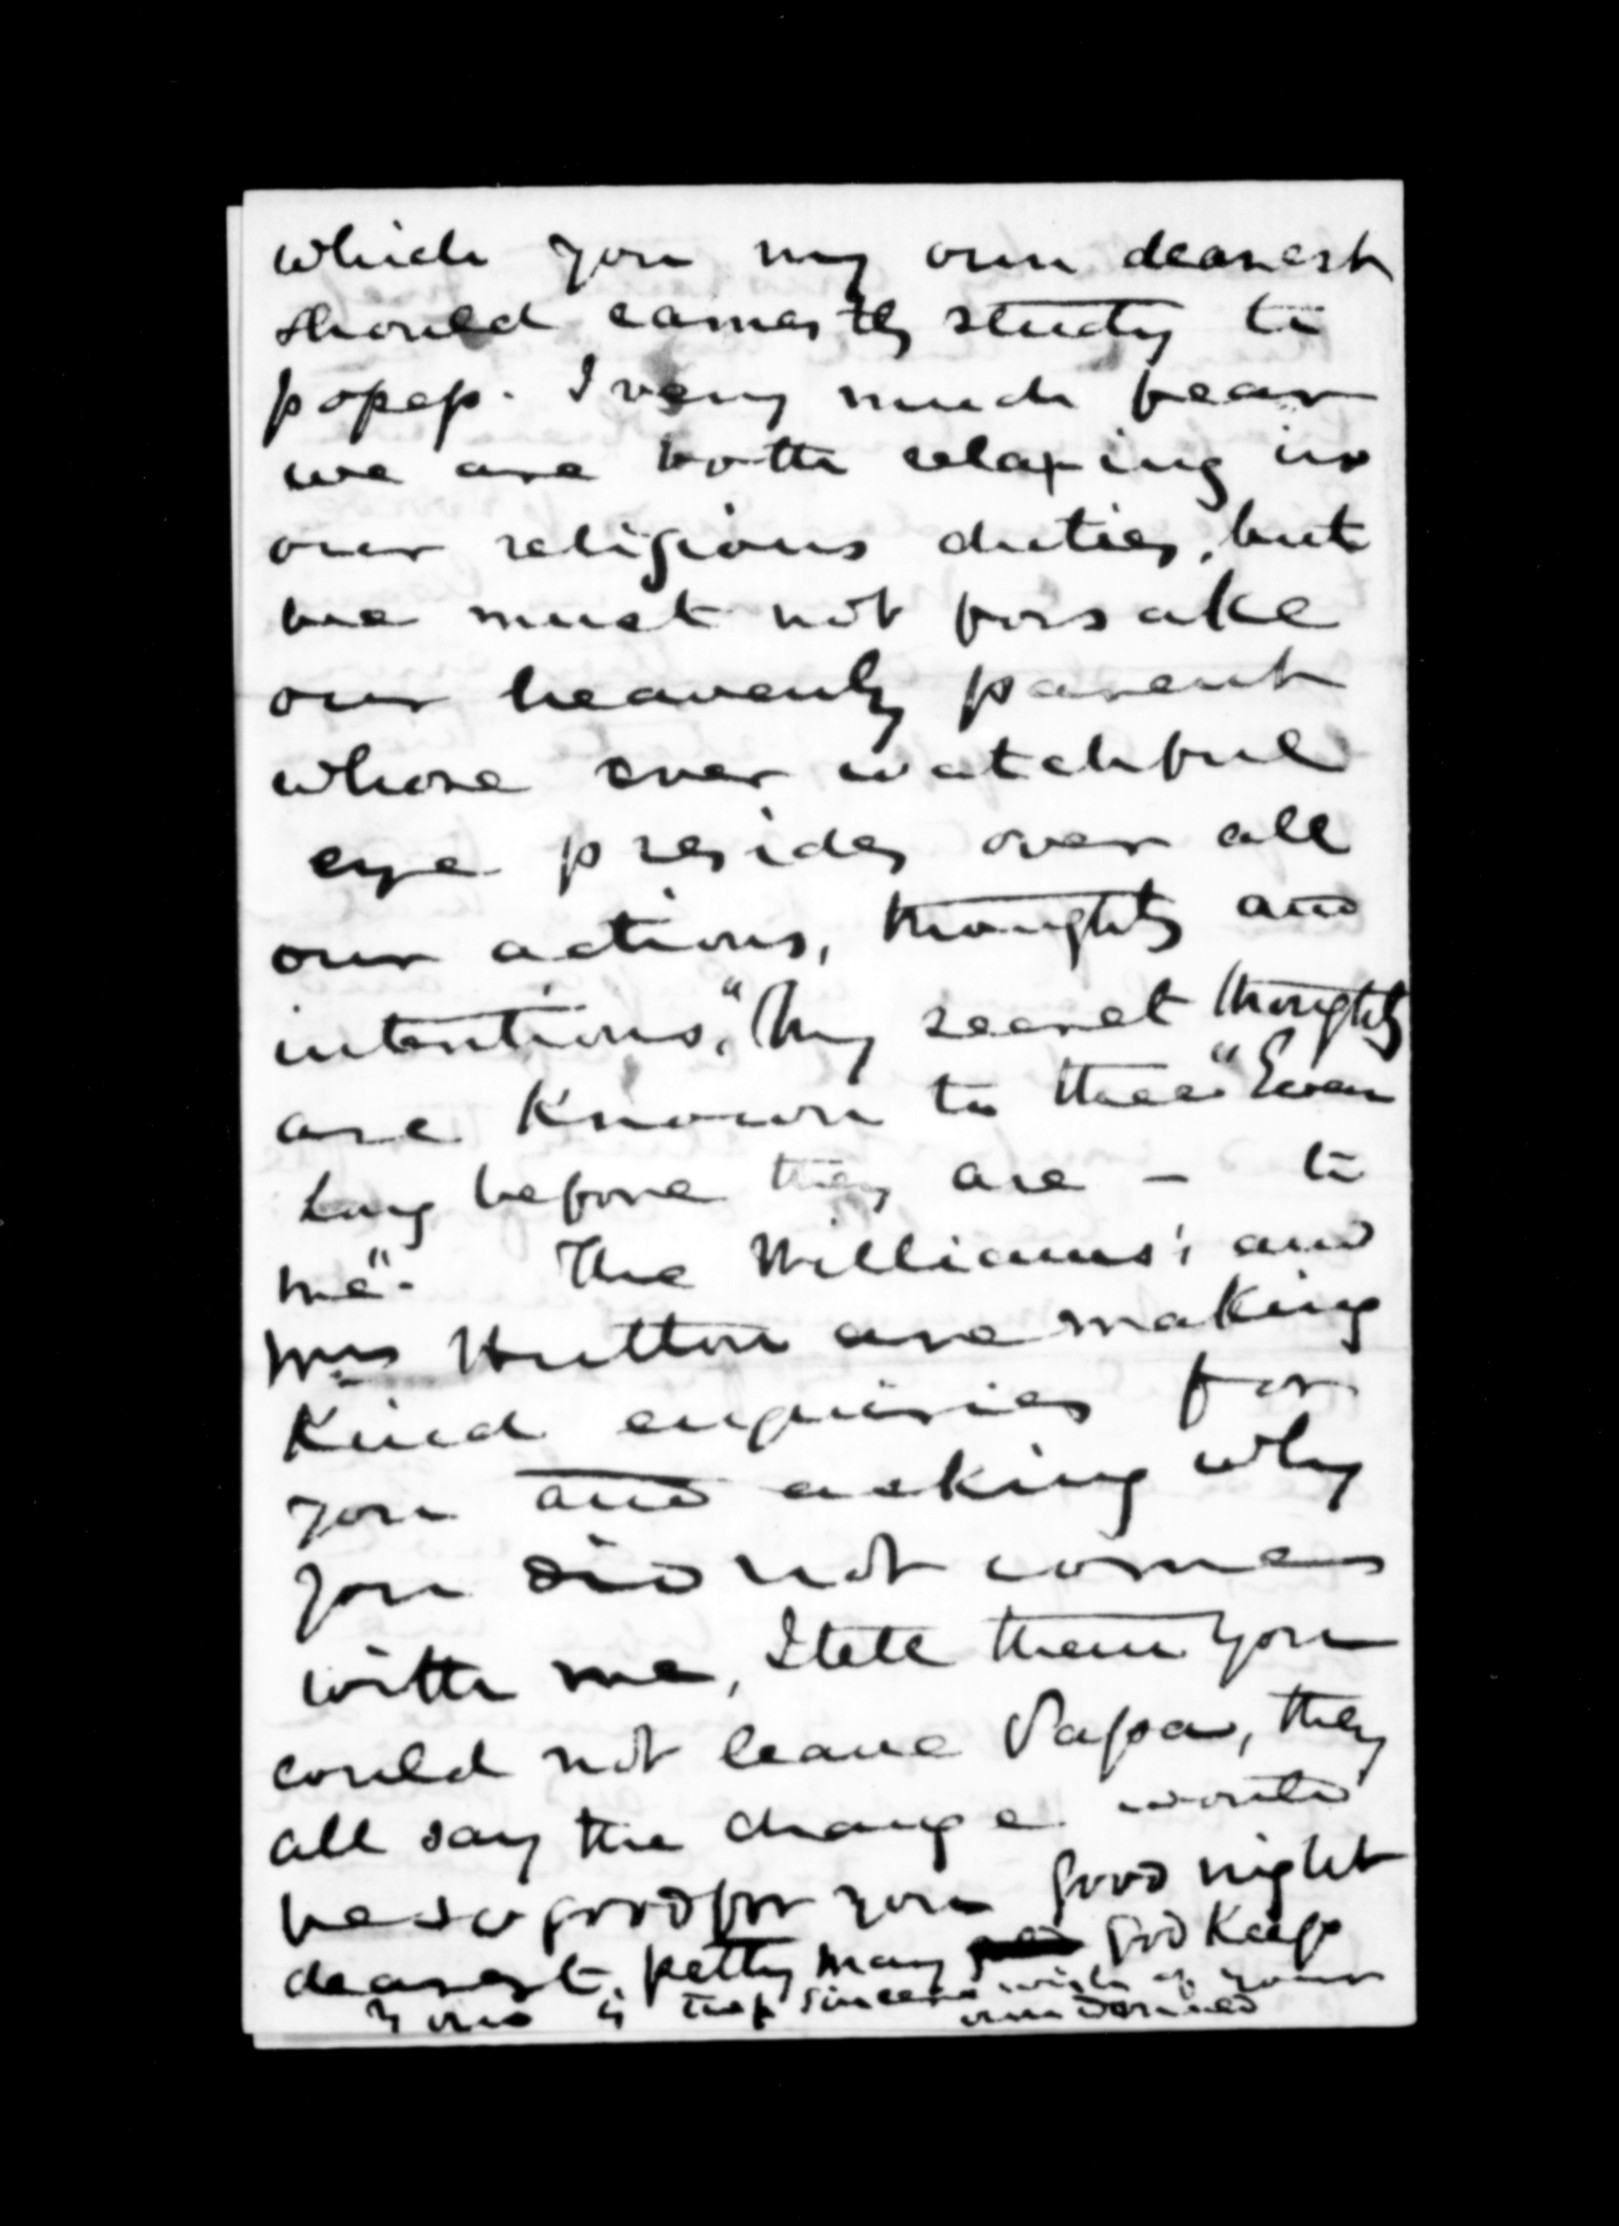 which you my own dearest
should earnestly study to
posess. I very much fear
we are both relaxing in
our religious duties, but
we must not forsake
our heavenly parent
whose ever watchful
eye presides over all
our actions, thoughts and
intentions, "My secret thoughts
are known to thee" "Even
long before they are - to
me". The Williams', and
Mrs Hutton are making
kind enquiries for
you and asking why
you did not come
with me, I tell them you
could not leave Papa, they
all say the change would
be so good for you good night
dearest petty may God keep
you is the sincere wish of your
own